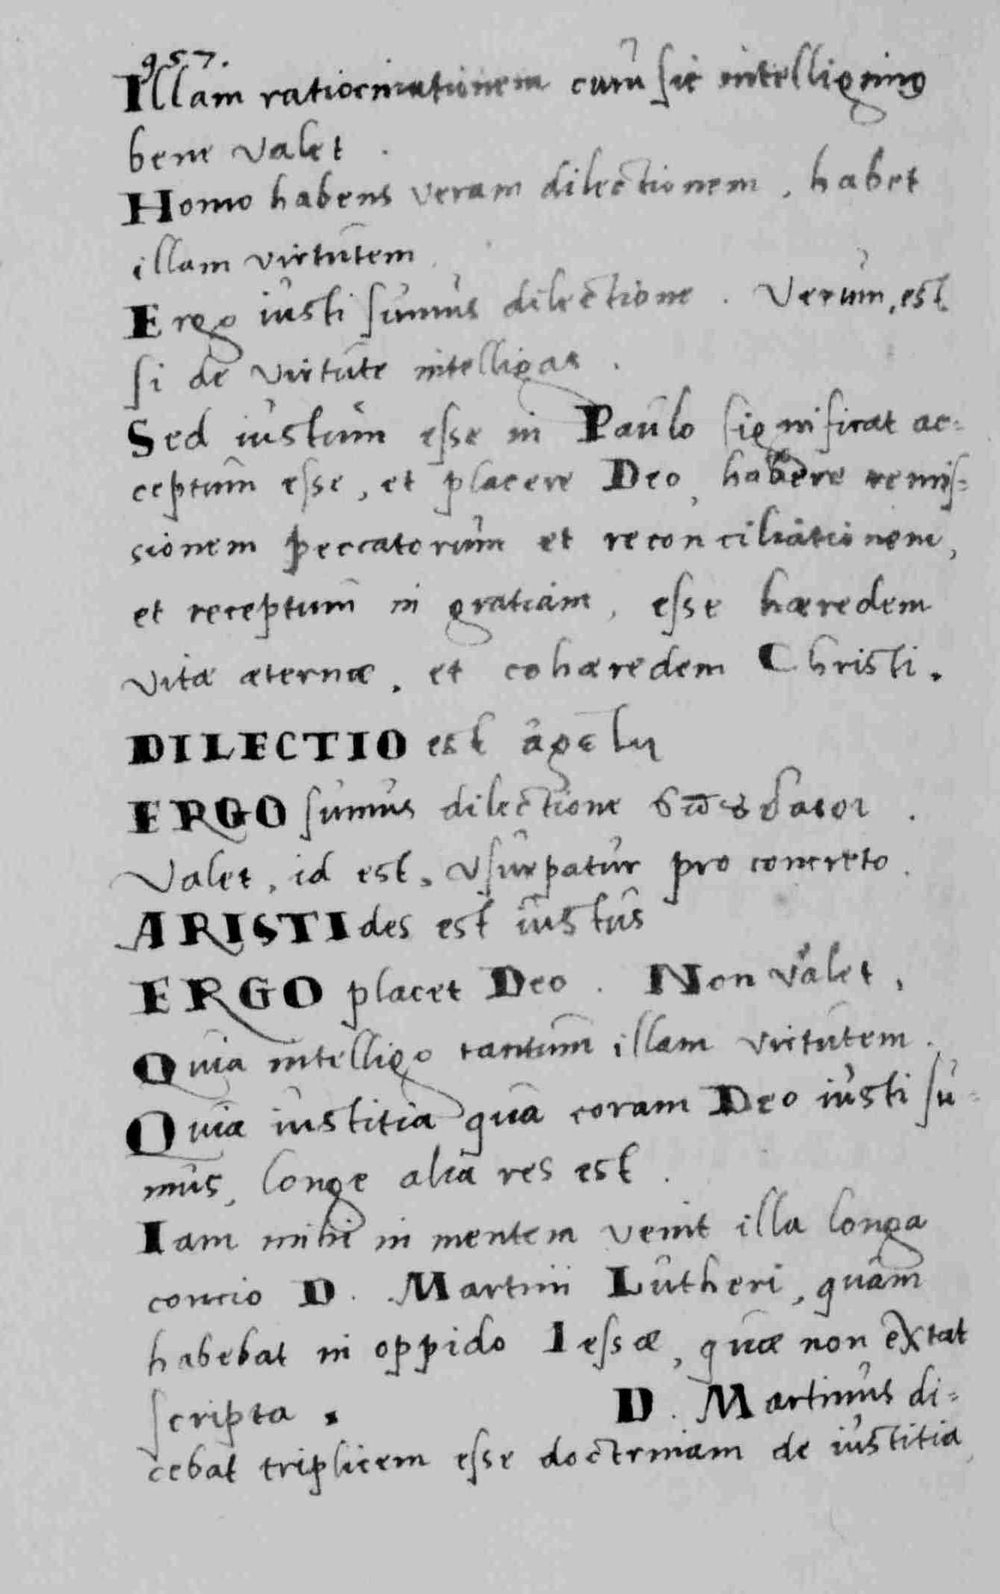 957.
Illam ratiocinationem cum sic intelligimg
bene valet.
Homo habens veram dilectionem, habet
illam virtutem
Ergo iusti sumus dilectione. Verum, est
si de virtute intelligas.
Sed iustum esse in Paulo significat ac-
ceptum esse, et placere Deo, habere remis-
sionem peccatorum et reconciliationem,
et receptum in gratiam, esse hæredem
vitæ æternæ, et cohæredem Christi.
DILECTIO est
ERGO sumus dilectione
Valet, id est, vsurpatur pro concreto.
ARISTIdes est iustus
ERGO placet Deo. Non valet,
Quia intelligo tantum illam virtutem.
Quia iustitia qua coram Deo iusti su-
mus, longe alia res est.
Iam mihi in mentem venit illa longa
concio D. Martini Lutheri, quam
habebat in oppido Iessæ, quæ non extat
scripta. D. Martinus di-
cebat triplicem esse doctrinam de iustitia,